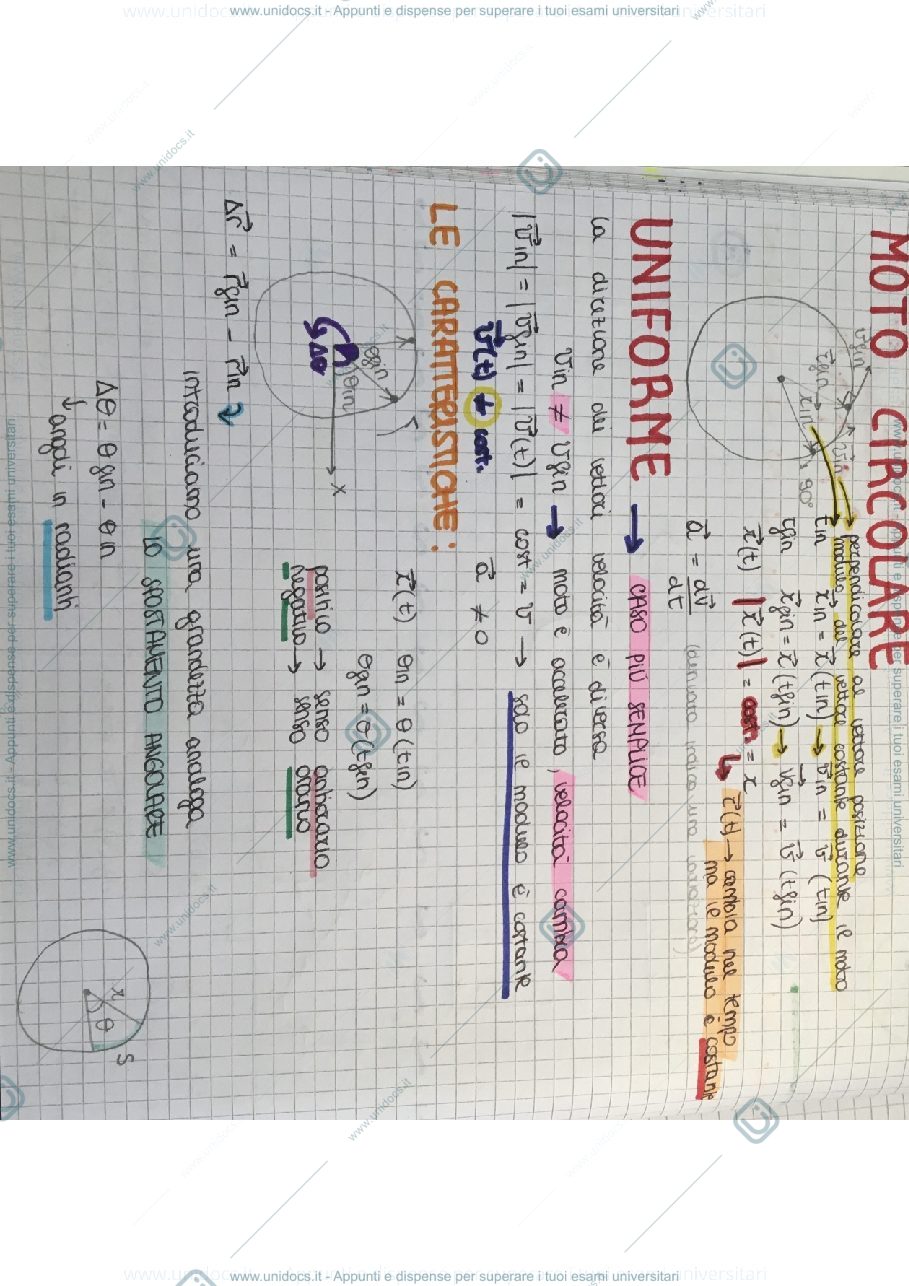 www.unidocs.it - Appunti e dispense per superare i tuoi esami universitari
MOTO CIRCOLARE
perpendicolare al vettore posizione
modulo del vettore costante durante il moto
v⃗fin
v⃗in
r⃗fin
r⃗in
90°
tin r⃗in = r⃗(tin) → v⃗in = v⃗(tin)
tfin r⃗fin = r⃗(tfin) → v⃗fin = v⃗(tfin)
r⃗(t) |r⃗(t)| = cost. = r
↳ r⃗(t) → cambia nel tempo
ma il modulo è costante
a⃗ = dv⃗/dt (derivata indica una variazione)
UNIFORME → CASO PIÙ SEMPLICE
la direzione dei vettori velocità è diversa
v⃗in ≠ v⃗fin → moto è accelerato, velocità cambia
|v⃗in| = |v⃗fin| = |v⃗(t)| = cost = v → solo il modulo è costante
v⃗(t) ≠ cost. a⃗ ≠ 0
LE CARATTERISTICHE:
θfin
θin
Δθ
x
r⃗(t) θin = θ(tin)
θfin = θ(tfin)
positivo → senso antiorario
negativo → senso orario
Δr⃗ = r⃗fin - r⃗in
introduciamo una grandezza analoga
LO SPOSTAMENTO ANGOLARE
Δθ = θfin - θin
↓ angoli in radianti
r
θ
S
www.unidocs.it - Appunti e dispense per superare i tuoi esami universitari